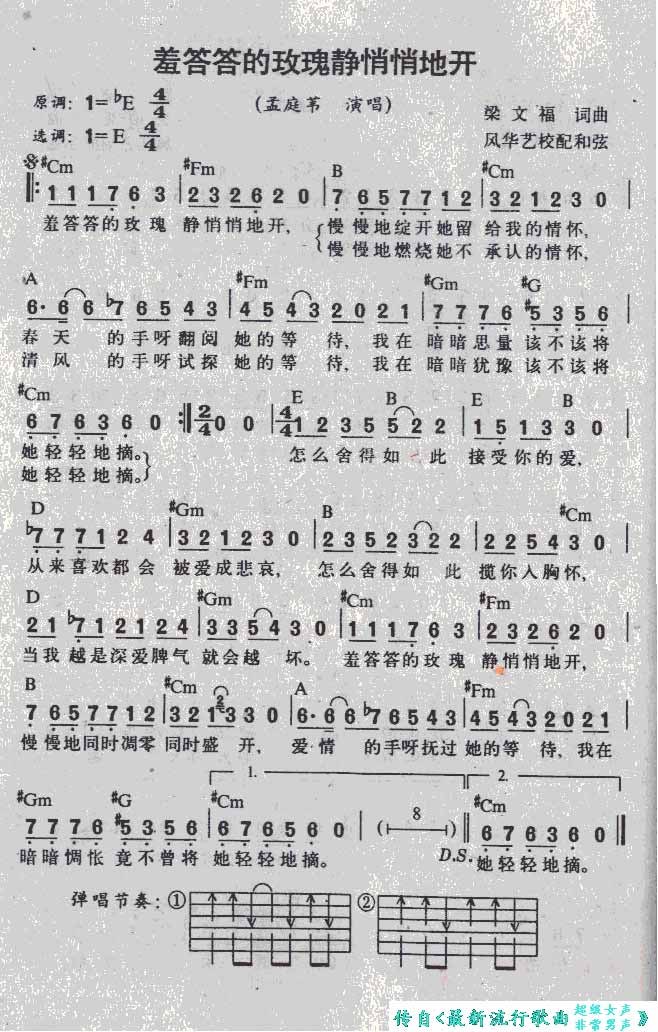 羞答答的玫瑰静悄悄地开
原调：1=♭E 4/4 （孟庭苇 演唱） 梁文福 词曲
选调：1=E 4/4 风华艺校配和弦
#Cm #Fm B #Cm
1 1 1 7 6 3 | 2 3 2 6 2 0 | 7 6 5 7 7 1 2 | 3 2 1 2 3 0 |
羞答答的玫瑰 静悄悄地开， 慢慢地绽开她留 给我的情怀，
慢慢地燃烧她不 承认的情怀，
A #Fm #Gm #G
6· 6 6 ♭7 6 5 4 3 | 4 5 4 3 2 0 2 1 | 7 7 7 6 #5 3 5 6 |
春天 的手呀翻阅 她的等 待，我在 暗暗思量 该不该将
清风 的手呀试探 她的等 待，我在 暗暗犹豫 该不该将
#Cm E B E B
6 7 6 3 6 0 :‖ 2/4 0 0 | 4/4 1 2 3 5 5 2 2 2 | 1 5 1 3 3 0 |
她轻轻地摘。 怎么舍得如 此 接受你的爱，
她轻轻地摘。
D #Gm B #Cm
♭7 7 7 1 2 4 | 3 2 1 2 3 0 | 2 3 5 2 3 2 2 | 2 2 5 4 3 0 |
从来喜欢都会 被爱成悲哀， 怎么舍得如 此 揽你入胸怀，
D #Gm #Cm #Fm
2 1 ♭7 1 2 1 2 4 | 3 3 5 4 3 0 | 1 1 1 7 6 3 | 2 3 2 6 2 0 |
当我 越是深爱脾气 就会越 坏。 羞答答的玫瑰 静悄悄地开，
B #Cm A #Fm
7 6 5 7 7 1 2 | 3 2 1 2 3 3 0 | 6· 6 6 ♭7 6 5 4 3 | 4 5 4 3 2 0 2 1 |
慢慢地同时凋零 同时盛 开， 爱情 的手呀抚过 她的等 待，我在
1. 2.
#Gm #G #Cm 8 #Cm
7 7 7 6 #5 3 5 6 | 6 7 6 5 6 0 | ( 8 ) ‖ 6 7 6 3 6 0 ‖
暗暗惆怅 竟不曾将 她轻轻地摘。 D.S. 她轻轻地摘。
弹唱节奏：① ②
传自《最新流行歌曲 超级女声 非常男声》